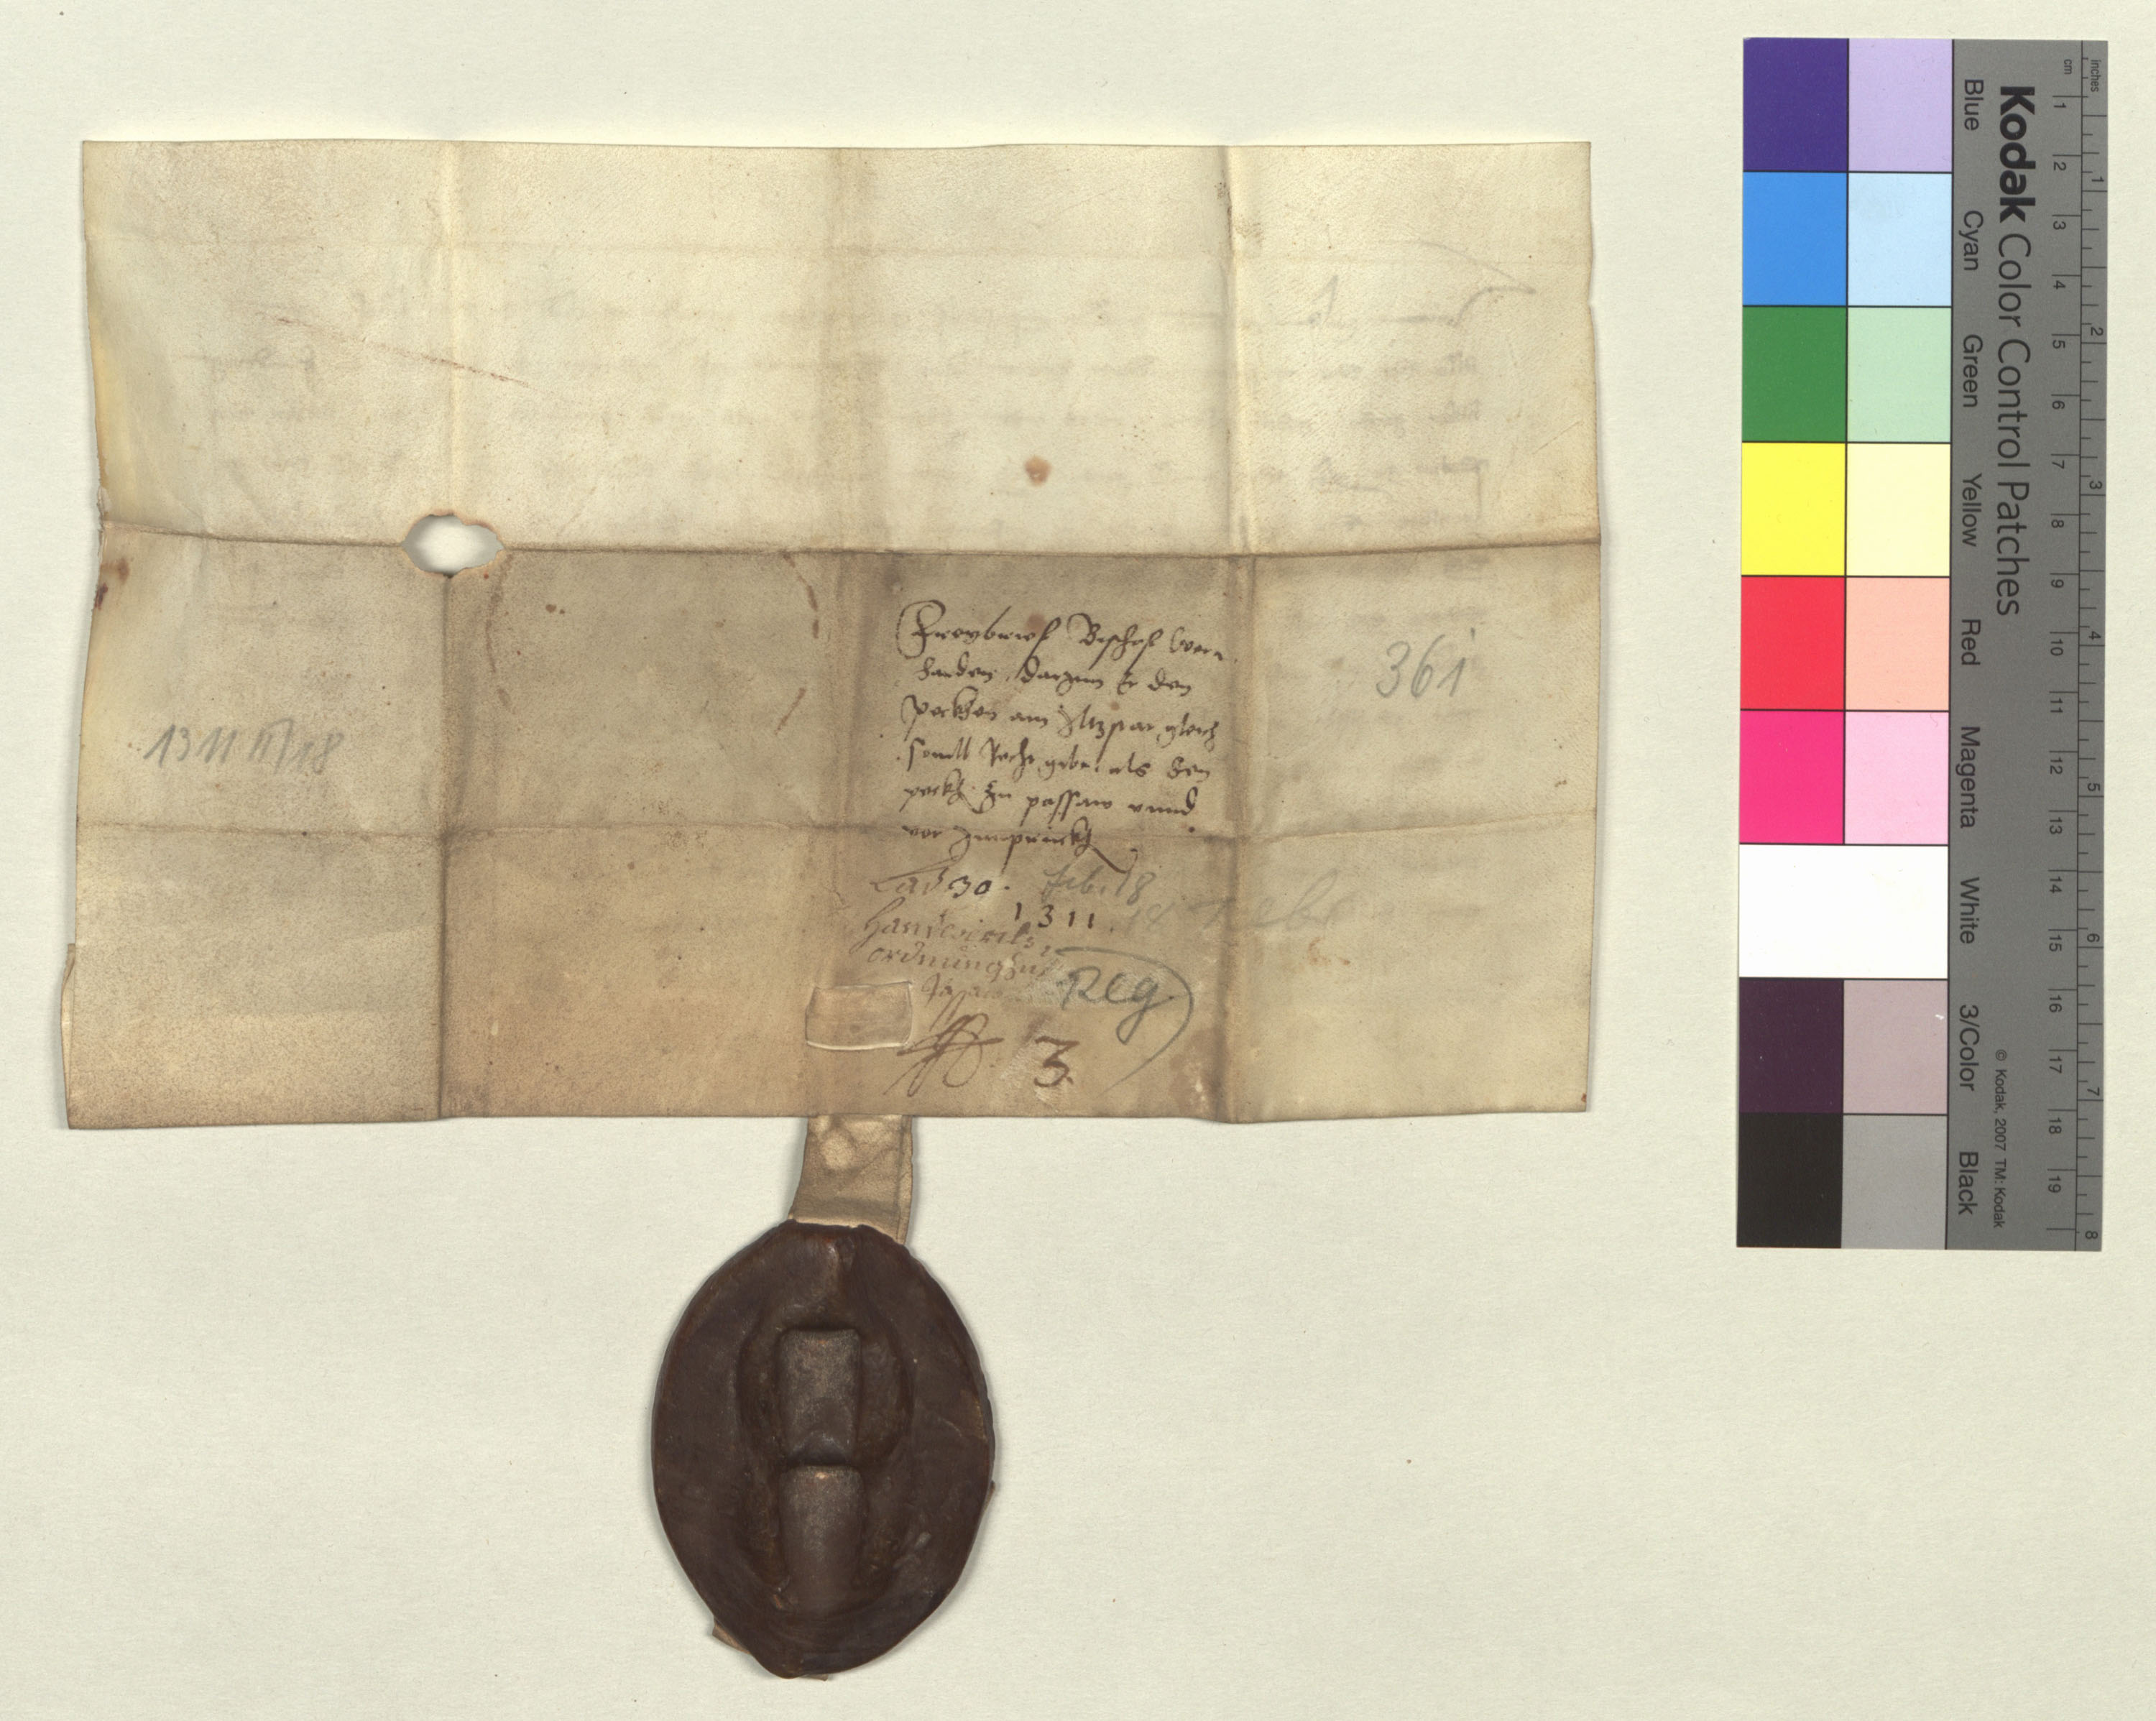 Freybrief Bischof Wern
harden, darynn Er den
Peckhen am Anger gleich
souill Recht geben als den
peckh. Zu passaw vnnd
vor Innpruckh
Lad 30. Feb. 18
1311. 18 Febr
Handwerks
ordnung Zu
Passau
Reg
3.
361
1311 II/18
Kodak Color Control Patches
Blue Cyan Green Yellow Red Magenta White 3/Color Black
© Kodak, 2007 TM: Kodak
cm 1 2 3 4 5 6 7 8 9 10 11 12 13 14 15 16 17 18 19
inches 1 2 3 4 5 6 7 8